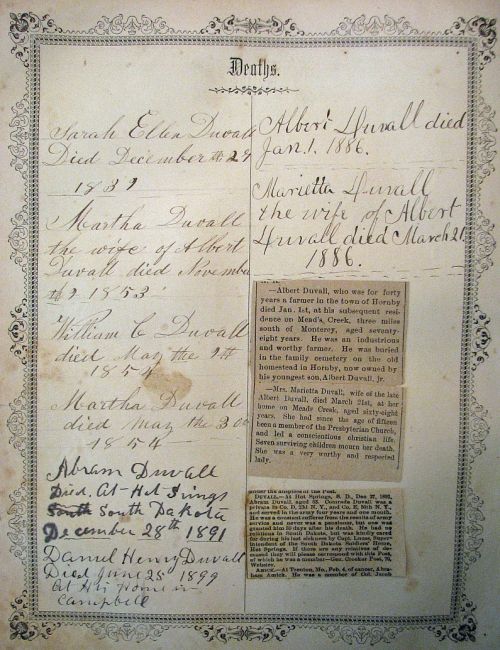 Deaths.
Sarah Ellen Duvall
Died December the 29
1839
Martha Duvall
the wife of Albert
Duvall died November
1853
William C Duvall
died May the 9th
1854
Martha Duvall
died May the 30
1854
Abram Duvall
Died. At Hot Springs
South South Dakota
December 28th 1891
Daniel Henry Duvall
Died June 25 1899
At His home in
Campbell
Albert Duvall died
Jan. 1. 1886.
Marietta Duvall
the wife of Albert
Duvall died March 21.
1886.
—Albert Duvall, who was for forty
years a farmer in the town of Hornby
died Jan. 1st, at his subsequent resi-
dence on Mead's Creek, three miles
south of Monterey, aged seventy-
eight years. He was an industrious
and worthy farmer. He was buried
in the family cemetery on the old
homestead in Hornby, now owned by
his youngest son, Albert Duvall, jr.
—Mrs. Marietta Duvall, wife of the late
Albert Duvall, died March 21st, at her
home on Meads Creek, aged sixty-eight
years. She had since the age of fifteen
been a member of the Presbyterian Church,
and led a conscientious christian life.
Seven surviving children mourn her death.
She was a very worthy and respected
lady.
under the auspices of the Post.
DUVALL—At Hot Springs, S. D., Dec 27, 1891,
Abram Duvall, aged 53. Comrade Duvall was a
private in Co. D, 23d N. Y., and Co. E, 5th N. Y.,
and served in all over four years and one month.
He was a constant sufferer from the results of army
service and never was a pensioner, but one was
granted him 10 days after his death. He had no
relations in South Dakota, but was kindly cared
for during his last sickness by Capt. Lucas, Super-
intendent of the South Dakota Soldiers' Home,
Hot Springs. If there are any relatives of de-
ceased they will please correspond with this Post,
of which he was a member—Gen.
Webster.
AMICK.—At Trenton, Mo., Feb. 4, of cancer, Abra-
ham Amick. He was a member of Col. Jacob